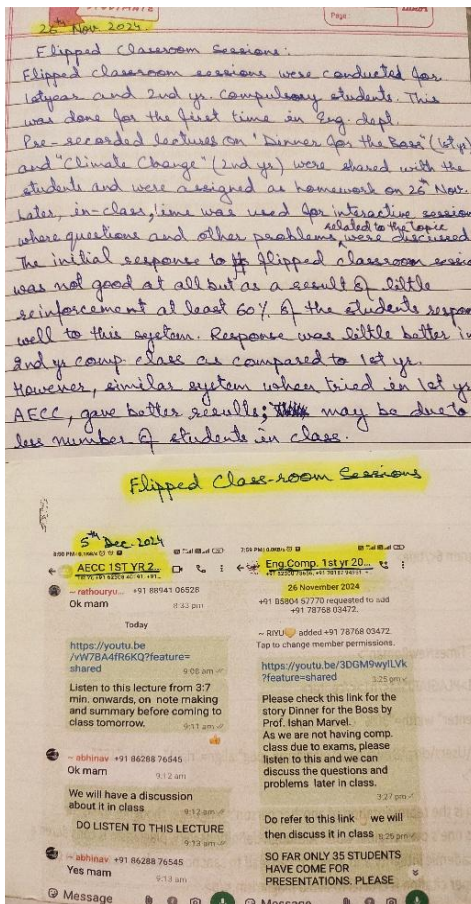 Page:
26th Nov. 2024.
Flipped Classroom Sessions:
Flipped classroom sessions were conducted for
1st year and 2nd yr. compulsory students. This
was done for the first time in Eng. dept.
Pre-recorded lectures on "Dinner for the Boss" (1st yr)
and "Climate Change" (2nd yr) were shared with the
students and were assigned as homework on 26th Nov.
Later, in-class, time was used for interactive session
where questions and other problems related to the topic were discussed
The initial response to flipped classroom sessio
was not good at all but as a result of little
reinforcement at least 60% of the students respon
well to this system. Response was little better in
2nd yr comp. class as compared to 1st yr.
However, similar system when tried in 1st yr
AECC, gave better results; may be due to
less number of students in class.
Flipped Class-room Sessions
5th Dec. 2024
AECC 1ST YR 2...
~ rathouryu... +91 88941 06528
Ok mam 8:33 pm
Today
https://youtu.be
/vW7BA4fR6KQ?feature=
shared 9:08 am
Listen to this lecture from 3:7
min. onwards, on note making
and summary before coming to
class tomorrow. 9:11 am
~ abhinav +91 86288 76545
Ok mam 9:12 am
We will have a discussion
about it in class 9:12 am
DO LISTEN TO THIS LECTURE
9:13 am
~ abhinav +91 86288 76545
Yes mam 9:13 am
Message
Eng.Comp. 1st yr 20...
26 November 2024
+91 85804 52770 requested to add
+91 78768 03472.
~ RIYU added +91 78768 03472.
Tap to change member permissions.
https://youtu.be/3DGM9wylLVk
?feature=shared 3:25 pm
Please check this link for the
story Dinner for the Boss by
Prof. Ishan Marvel.
As we are not having comp.
class due to exams, please
listen to this and we can
discuss the questions and
problems later in class.
3:27 pm
Do refer to this link we will
then discuss it in class 8:25 pm
SO FAR ONLY 35 STUDENTS
HAVE COME FOR
PRESENTATIONS. PLEASE
Message